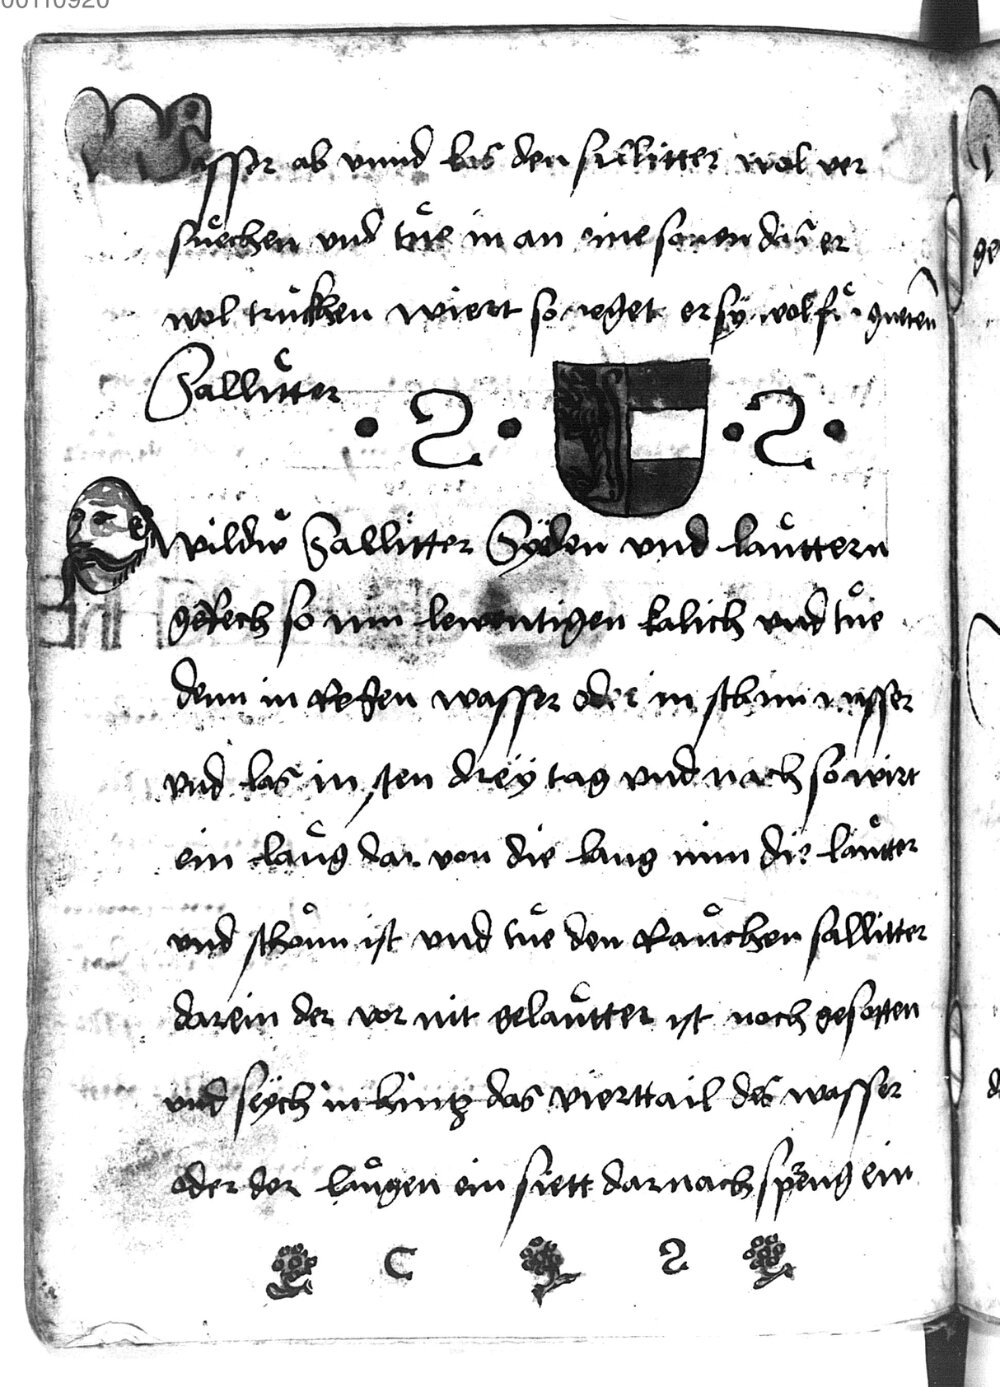 00110920
Wasser ab vnnd las den sallitter wol ver
suͤechen vnd tuͤe in an eine sonen das er
wol truͤkhen wiert so eget er sy wol fuͤr gueten
Salliter
• 2 • • 2 •
Wildw Sallitter Syeden vnd lauͤttern
so nim lewentigen kalich vnd tuͤe
denn in Regen wasser oder in wasser
vnd las in sten dreÿ tag vnd nach so wirt
ein lauͤg dar von die laug nim die lauͤtter
vnd schoͤnn ist vnd tuͤe den Rauͤchen sallitter
darein der vor nit gelauͤtter ist noch gesotten
vnd seÿch in hintz das vierttail des wasser
oder der lauͤgen ein siett darnach spreng ein
C 2